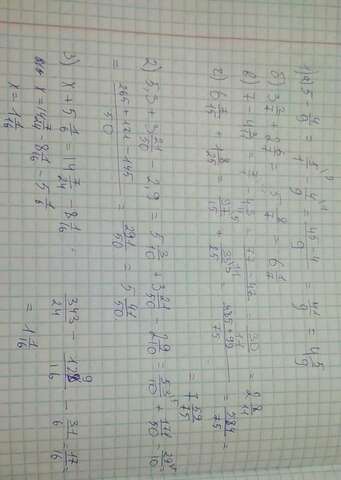 5 - 4/9 = 5/1 - 4/9 = 45-4/9 = 41/9 = 4 5/9
б) 3 2/7 + 2 6/7 = 5 8/7 = 6 1/7
в) 7 - 4
г) 6 7/15 + 1 8/25 = 97/15 + 33/25 = 485+99/75 = 584/75 =
= 7 59/75
2) 5,3 + 3 21/50 - 2,9 = 5 3/10 + 3 21/50 - 2 9/10 = 53/10 + 171/50 - 29/10 =
= 265+171-145/50 = 291/50 = 5 41/50
3) x + 5 1/6 = 14 7/24 - 8 1/16; 343/24 - 129/16 - 31/6 = 17/16 =
x = 14 7/24 - 8 1/16 - 5 1/6 = 1 1/16
x = 1 1/16